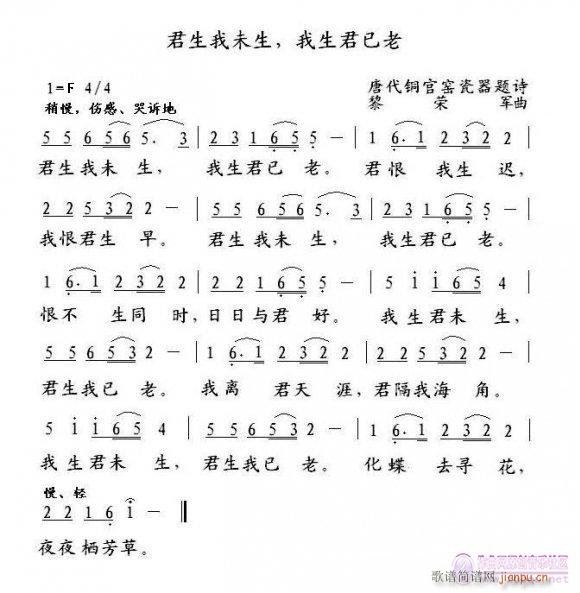 君生我未生，我生君已老
1=F 4/4
唐代铜官窑瓷器题诗
稍慢，伤感、哭诉地
黎荣军曲
5 5 6 5 6 5. 3 | 2 2 3 1 6 5 - | 1 6. 1 2 3 2 2 |
君生我未 生， 我生君已 老。 君恨 我生 迟，
2 2 5 3 2 2 - | 5 5 6 5 6 5. 3 | 2 2 3 1 6 5 - |
我恨君生 早。 君生我未 生， 我生君已 老。
1 6. 1 2 3 2 2 | 1 1 2 3 2 - | 5 i i 6 5 4 |
恨不 生同 时，日日与君 好。 我生君未 生，
5 5 6 5 3 2 - | 1 6. 1 2 3 2 2 | 5 i i 6 5 4 |
君生我已 老。 我离 君天 涯，君隔我海 角。
5 i i 6 5 4 | 5 5 6 5 3 2 - | 1 6. 1 2 3 2 2 |
我生君未 生， 君生我已 老。 化蝶 去寻 花，
慢、轻
2 2 1 6 i - ‖
夜夜栖芳草。
歌谱简谱网 jianpu.cn